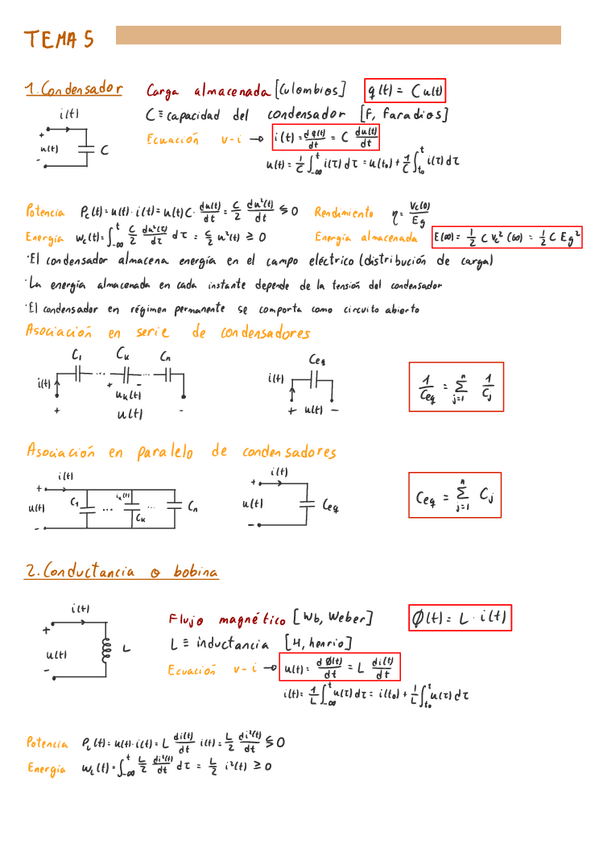 TEMA 5
1. Condensador Carga almacenada [Culombios] q(t) = C u(t)
i(t) C ≡ capacidad del condensador [F, Faradios]
+ u(t) - C Ecuación v-i → i(t) = dq(t)/dt = C du(t)/dt
u(t) = 1/C ∫_{-∞}^{t} i(τ) dτ = u(t₀) + 1/C ∫_{t₀}^{t} i(τ) dτ
Potencia P_c(t) = u(t) · i(t) = u(t) C · du(t)/dt = C/2 du²(t)/dt ≶ 0 Rendimiento η = V_c(∞)/E_g
Energía w_c(t) = ∫_{-∞}^{t} C/2 du²(τ)/dτ dτ = C/2 u²(t) ≥ 0 Energía almacenada E(∞) = 1/2 C V_c² (∞) = 1/2 C E_g²
· El condensador almacena energía en el campo eléctrico (distribución de carga)
· La energía almacenada en cada instante depende de la tensión del condensador
· El condensador en régimen permanente se comporta como circuito abierto
Asociación en serie de condensadores
C₁ C_k C_n C_eq
i(t) ... + - ... i(t) 1/C_eq = Σ_{j=1}^{n} 1/C_j
u_k(t)
+ u(t) - + u(t) -
Asociación en paralelo de condensadores
i(t) i(t)
+ u(t) - C₁ ... i_k(t) C_k ... C_n + u(t) - C_eq C_eq = Σ_{j=1}^{n} C_j
2. Conductancia o bobina
i(t) Flujo magnético [Wb, Weber] Ø(t) = L · i(t)
+ u(t) - L L ≡ inductancia [H, henrio]
Ecuación v-i → u(t) = dØ(t)/dt = L di(t)/dt
i(t) = 1/L ∫_{-∞}^{t} u(τ) dτ = i(t₀) + 1/L ∫_{t₀}^{t} u(τ) dτ
Potencia P_L(t) = u(t) · i(t) = L di(t)/dt i(t) = L/2 di²(t)/dt ≶ 0
Energía w_L(t) = ∫_{-∞}^{t} L/2 di²(τ)/dτ dτ = L/2 i²(t) ≥ 0